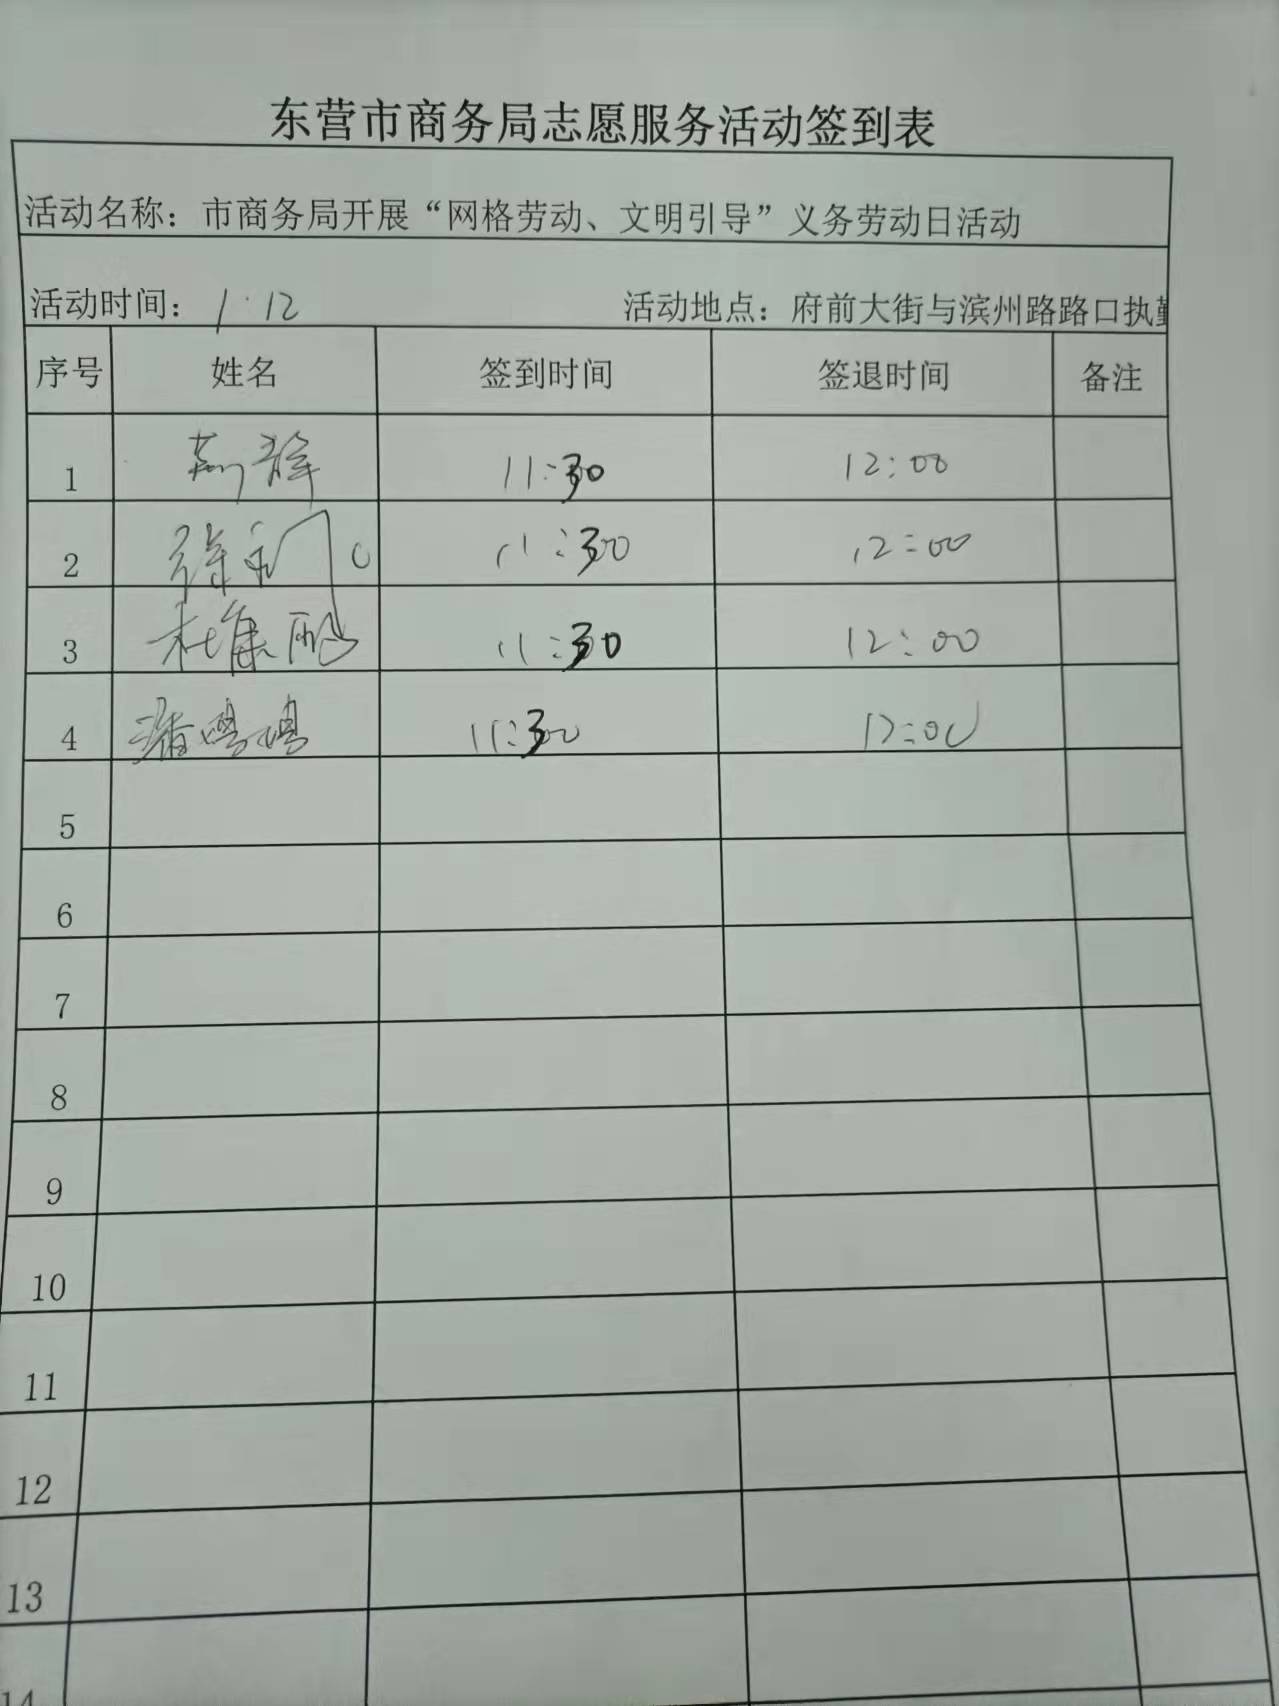 东营市商务局志愿服务活动签到表
活动名称：市商务局开展“网格劳动、文明引导”义务劳动日活动
活动时间：1.12 活动地点：府前大街与滨州路路口执勤
序号 姓名 签到时间 签退时间 备注
1 11:30 12:00
2 徐 11:30 12:00
3 杜集 11:30 12:00
4 潘 11:30 12:00
5
6
7
8
9
10
11
12
13
14